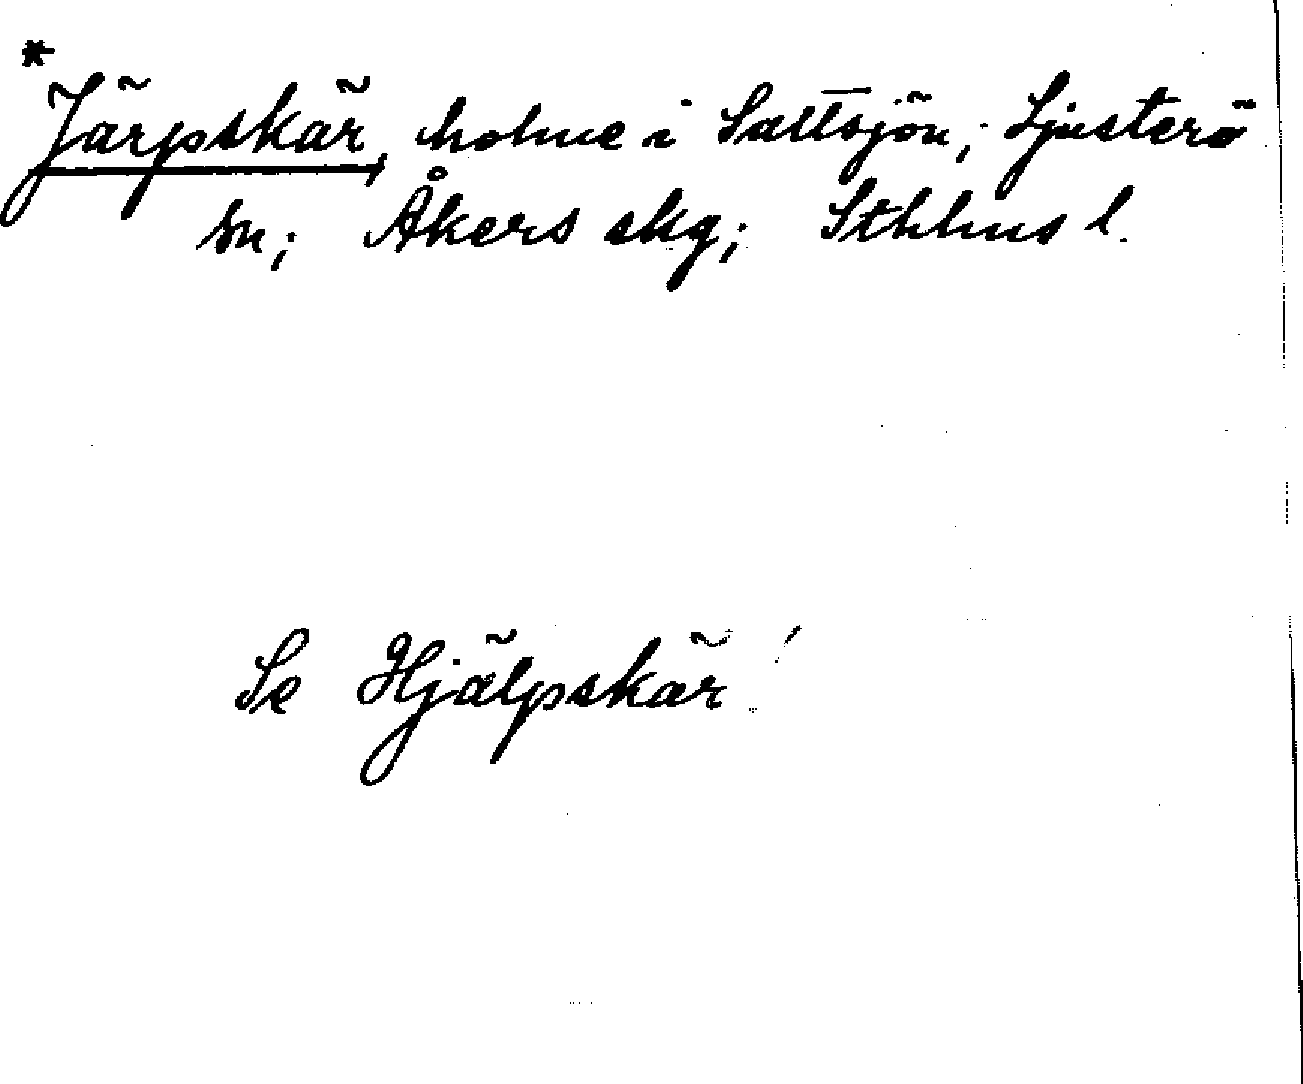 *
Järpskär, holme i Saltsjön; Ljusterö
sn; Åkers skg; Sthlms l.
Se Hjälpskär!